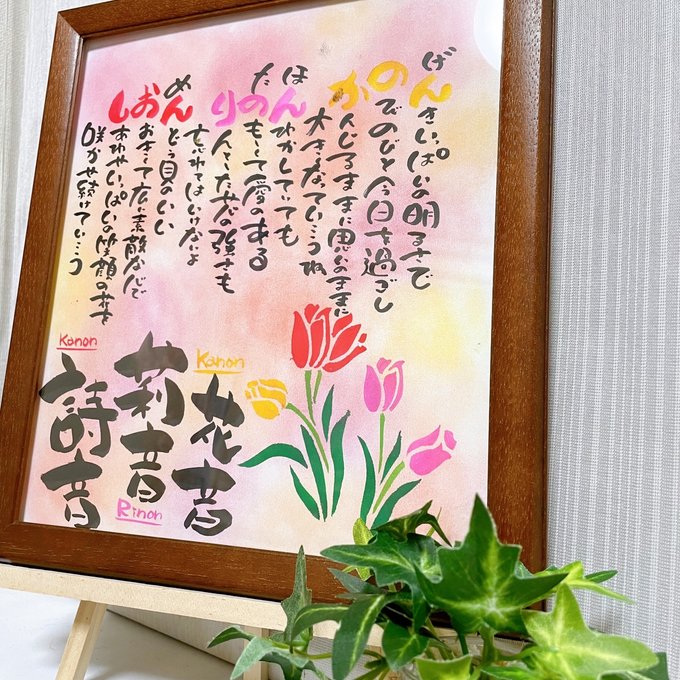 げんきいっぱいの明るさで
のびのびと今日を過ごし
かんじるままに思いのままに
大きくなっていこうね
ほんわかしていても
たのもしくて愛のある
りんとした心の強さも
忘れてはいけないよ
めんどう見のいい
おおきくて広い素敵な心で
しあわせいっぱいの笑顔の花を
咲かせ続けていこう
Kanon
花音
莉音
Rinon
Kanon
詩音